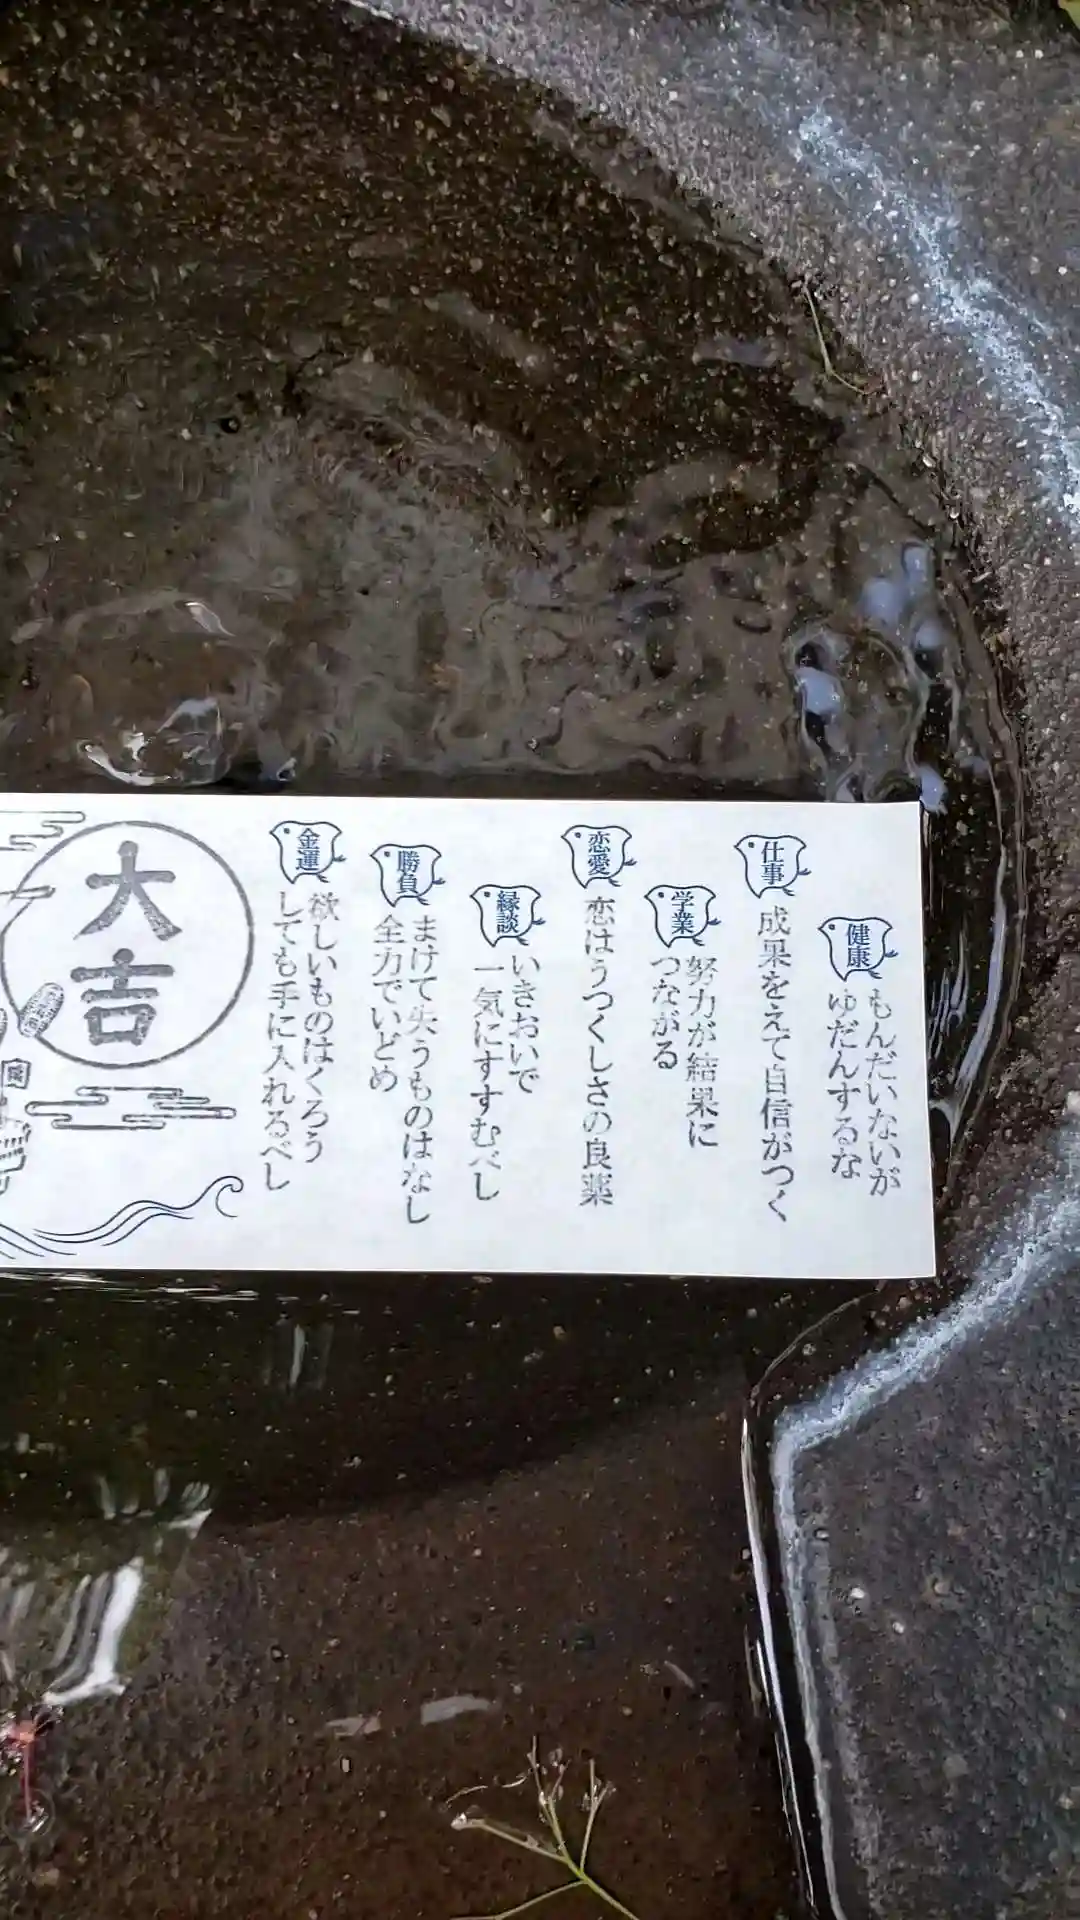 健康
もんだいないが
ゆだんするな
仕事
成果をえて自信がつく
学業
努力が結果に
つながる
恋愛
恋はうつくしさの良薬
縁談
いきおいで
一気にすすむべし
勝負
まけて失うものはなし
全力でいどめ
金運
欲しいものはくろう
しても手に入れるべし
大吉